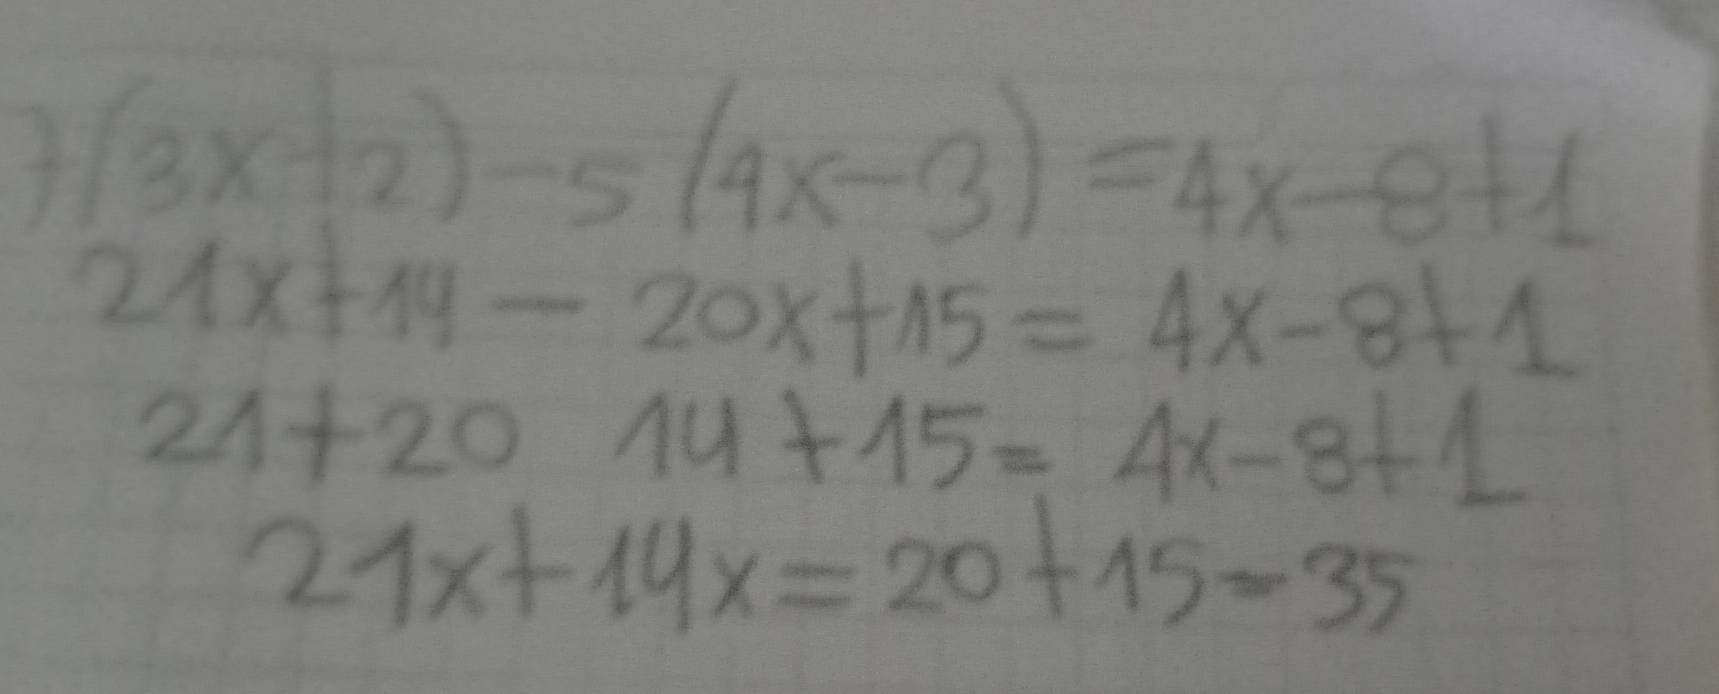 7(3x+2)-5(4x-3)=4x-8+1
21x+14-20x+15=4x-8+1
21+20 14+15=4x-8+1
21x+14x=20+15-35